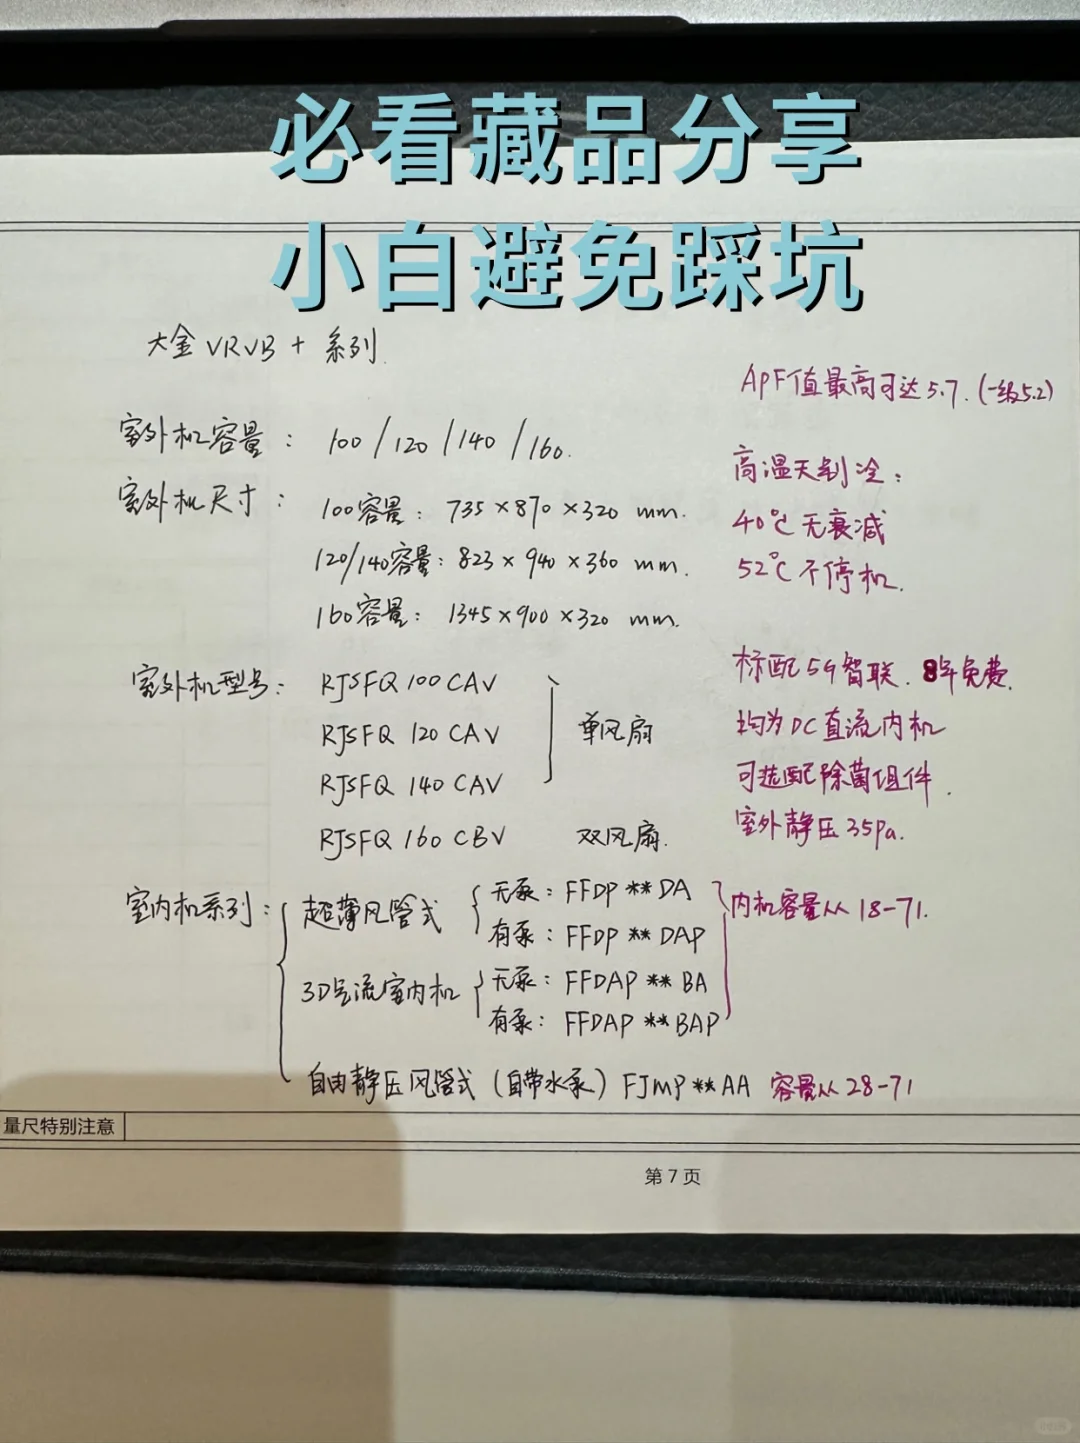 必看藏品分享
小白避免踩坑
大金 VRVB + 系列
室外机容量： 100 / 120 / 140 / 160.
室外机尺寸： 100容量： 735×870×320 mm.
120/140容量：823×940×360 mm.
160容量： 1345×900×320 mm.
室外机型号： RJSFQ 100 CAV
RJSFQ 120 CAV 单风扇
RJSFQ 140 CAV
RJSFQ 160 CBV 双风扇.
室内机系列： 超薄风管式 无泵：FFDP ** DA
有泵：FFDP ** DAP
3D气流室内机 无泵：FFDAP ** BA
有泵：FFDAP ** BAP
自由静压风管式（自带水泵）FJMP ** AA 容量从 28-71
APF值最高可达 5.7.（一级5.2）
高温天制冷：
40℃ 无衰减
52℃ 不停机.
标配 5G 智联. 8年免费.
均为 DC 直流内机
可选配除菌组件.
室外静压 35Pa.
内机容量从 18-71.
量尺特别注意
第 7 页